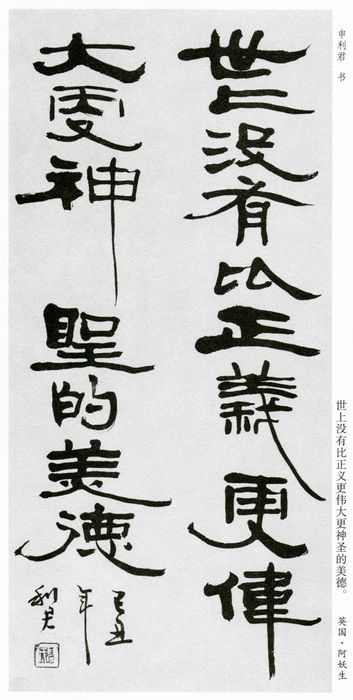 申利君 书
世上没有比正義更偉
大更神聖的美德
己丑
年
利君
世上没有比正义更伟大更神圣的美德。
英国·阿妖生